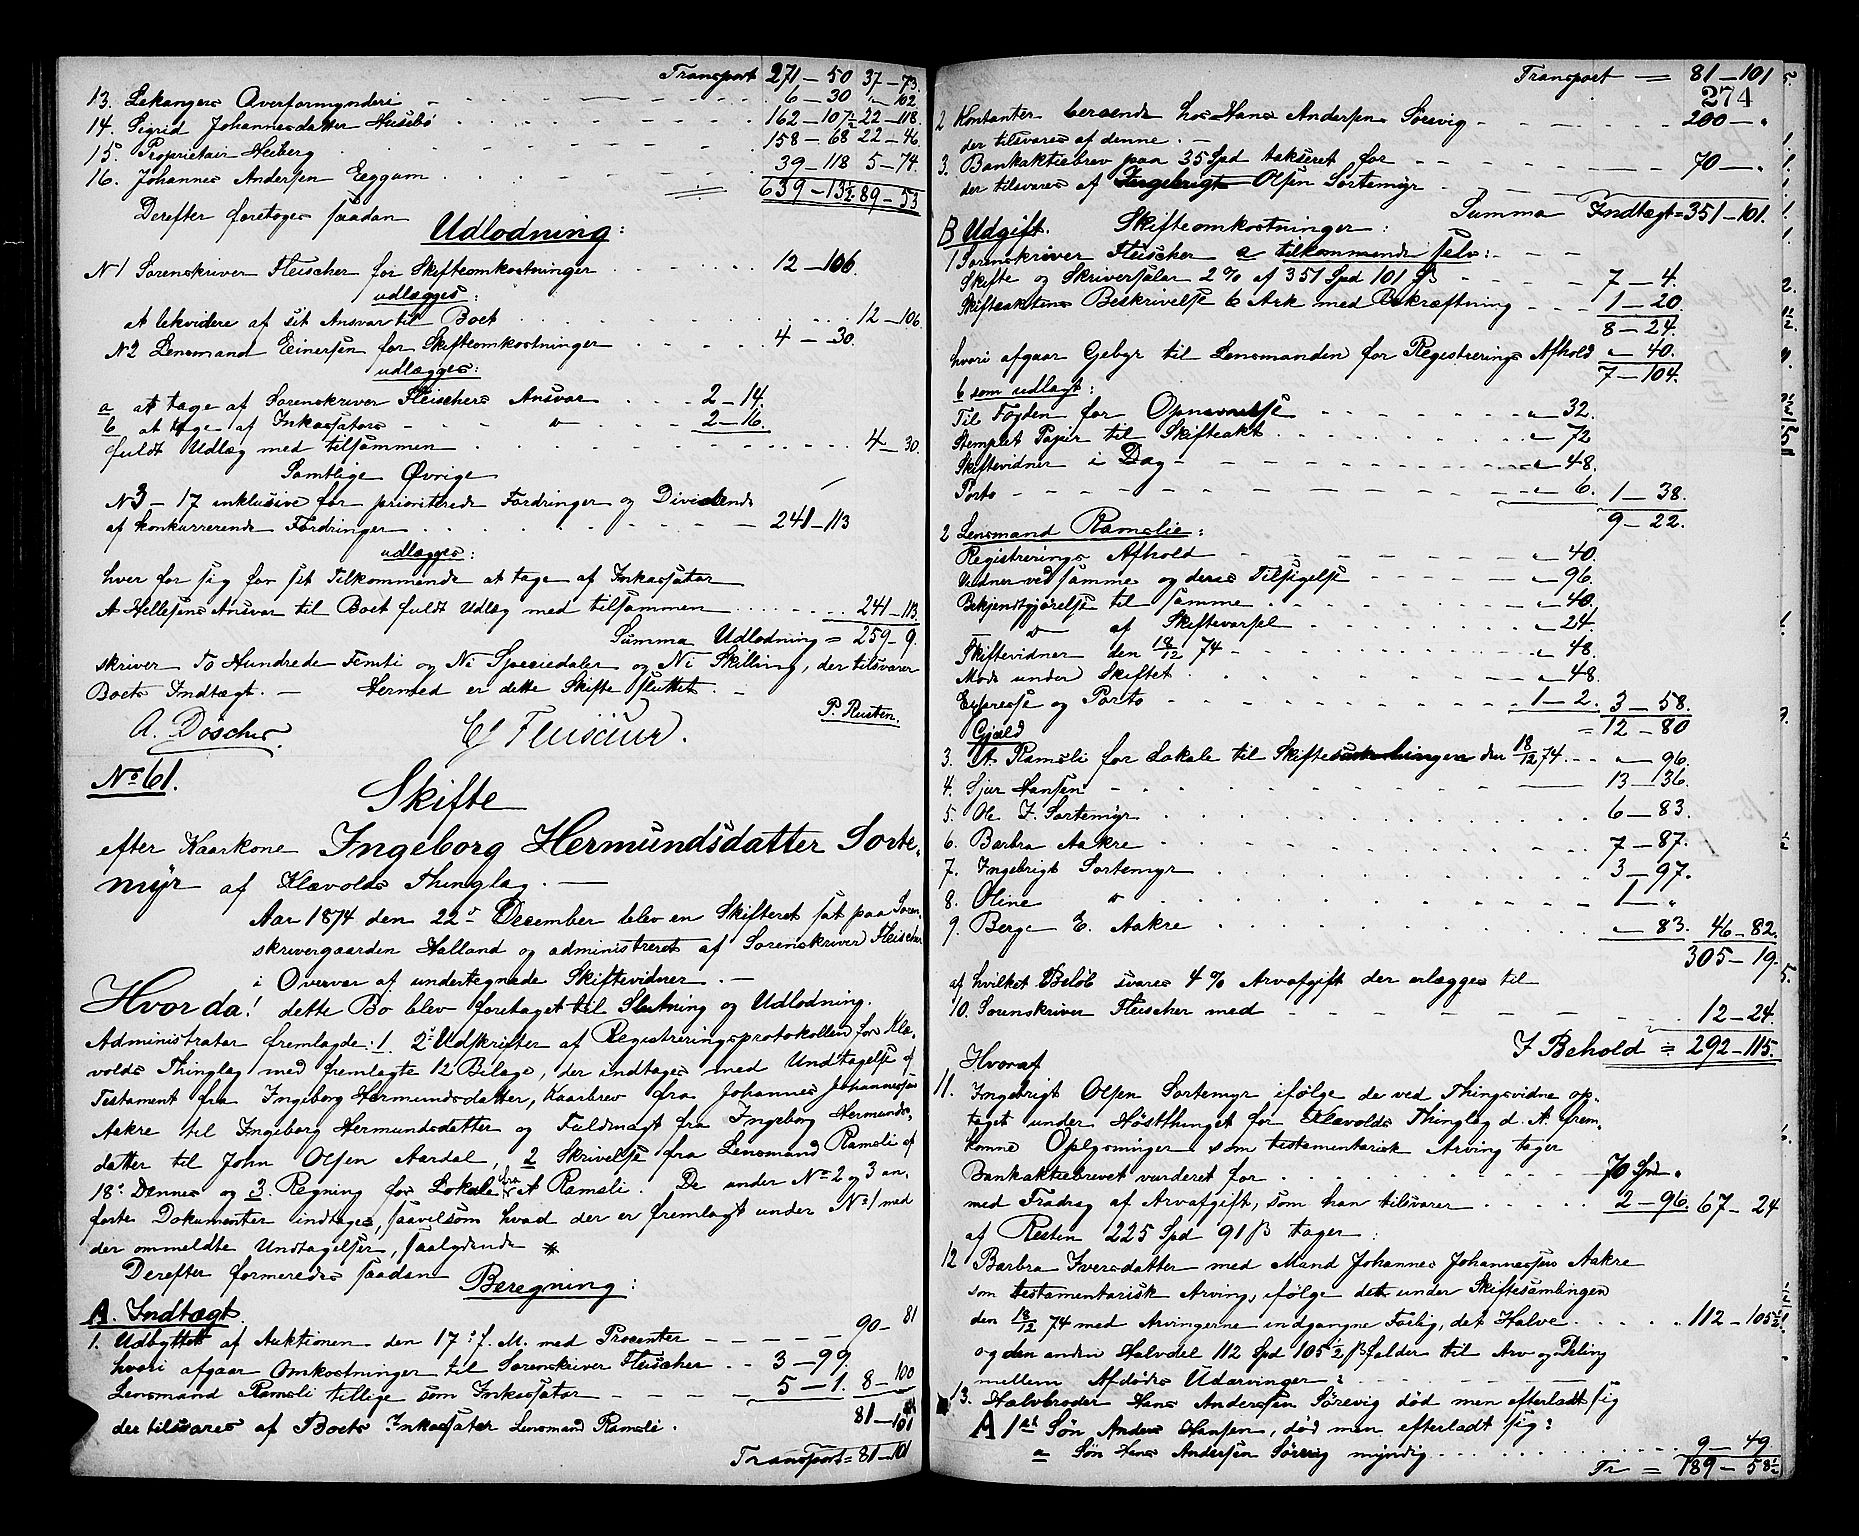 Transport 271 – 50 37 – 73.
13. Lekangers Overformynderi - 6 – 30 " – 102
14. Sigrid Johannesdatter Husebø 162 – 107½ 22 – 118.
15. Proprietair Heiberg 158 – 68 22 – 46.
16. Johannes Andersen Eeggum 39 – 118 5 – 74.
= 639 – 13½ 89 – 53
Derefter foretoges saadan
Udlodning:
No 1 Sorenskriver Fleischer for Skifteomkostninger 12 – 106.
udlægges:
at likvidere af sit Ansvar til Boet 12 – 106.
No 2 Lensmand Einersen for Skifteomkostninger 4 – 30.
udlægges:
a at tage af Sorenskriver Fleischers Ansvar 2 – 14.
b at tage af Inkassators " 2 – 16.
fuldt Udlæg med tilsammen 4 – 30.
Samtlige Øvrige
No 3 – 17 inklusive for prioriterede Fordringer og Dividende
af konkurrerende Fordringer 241 – 113
udlægges:
hver for sig for sit Tilkommende at tage af Inkassator
A Hellesens Ansvar til Boet fuldt Udlæg med tilsammen 241 – 113.
Summa Udlodning = 259 – 9.
skriver To Hundrede Femti og Ni Speciedaler og Ni Skilling, der tilsvarer
Boets Indtægt. – Hermed er dette Skifte sluttet. –
P. Rusten.
A. Döscher. Fleischer.
No 61.
Skifte
efter Kaarkone Ingeborg Hermundsdatter Sorte-
myr af Klævolds Thinglag. –
Aar 1874 den 22de December blev en Skifteret sat paa Soren-
skrivergaarden Halland og administreret af Sorenskriver Fleischer
i Overvær af undertegnede Skiftevidner. –
Hvorda! dette Bo blev foretaget til Slutning og Udlodning.
Administrator fremlagde: 1. 2de Udskrifter af Registreringsprotokollen for Klæ-
volds Thinglag med fremlagte 12 Bilage, der indtages med Undtagelse af
Testament fra Ingeborg Hermundsdatter, Kaarbrev fra Johannes Johannessen
Aakre til Ingeborg Hermundsdatter og Fuldmagt fra Ingeborg Hermunds-
datter til John Olsen Aardal, 2 Skrivelse fra Lensmand Ramsli af
18de Dennes og 3. Regning for Lokale fra A Ramsli. De under No 2 og 3 an-
førte Dokumenter indtages, saavelsom hvad der er fremlagt under No 1 med
der ommeldte Undtagelser, saalydende *
Derefter formeredes saadan Beregning:
A. Indtægt.
1. Udbyttet af Auktionen den 17de f. M. med Procenter 90 – 81
hvori afgaar Omkostninger til Sorenskriver Fleischer 3 – 99.
Lensmand Ramsli tillige som Inkassator 5 – 1. 8 – 100
81 – 101
der tilsvares af Boets Inkassator Lensmand Ramsli.
Transport = 81 – 101
Transport = 81 – 101
274
2 Kontanter beroende hos Hans Andersen Sørevig 200 – "
der tilsvares af denne. –
3. Bankaktiebrev paa 35 Spd takseret for 70 – "
der tilsvares af Ingebrigt Olsen Sortemyr
Summa Indtægt = 351 – 101.
B Udgift. Skifteomkostninger:
1 Sorenskriver Fleischer a tilkommende selv:
Skifte og Skriversaler 2 % af 351 Spd 101 ß 7 – 4.
Skifteaktens Beskrivelse 6 Ark med Bekræftning 1 – 20.
8 – 24.
hvori afgaar Gebyr til Lensmanden for Registrerings Afhold " – 40.
7 – 104.
b som udlagt:
Til Fogden for Opnævnelse " 32.
Stemplet Papir til Skifteakt " 72
Skiftevidner i Dag " 48.
Porto " 6. 1 – 38.
9 – 22.
2 Lensmand Ramslie:
Registrerings Afhold " 40.
Vidner ved samme og deres Tilsigelse " 96.
Bekjendtgjørelse til samme " 40.
" af Skiftevarsel " 24.
Skiftevidner den 18/12 74 " 48.
Møde under Skiftet " 48.
Expresse og Porto 1 – 2. 3 – 58.
Gjæld = 12 – 80
3. A. Ramsli for Lokale til Skiftesamlingen den 18/12 74 " – 96.
4. Sjur Hansen 13 – 36.
5. Ole I. Sortemyr 6 – 83.
6. Barbra Aakre 7 – 87.
7. Ingebrigt Sortemyr 3 – 97.
8. Oline " 1 – "
9. Berge E. Aakre " – 83. 46 – 82.
305 – 19.
af hvilket Beløb svares 4 % Arveafgift der erlægges til
10. Sorenskriver Fleischer med 12 – 24.
I Behold = 292 – 115.
Hvoraf
11. Ingebrigt Olsen Sortemyr ifølge de ved Thingsvidne op-
taget under Høstthinget for Klævolds Thinglag d. A. frem-
komne Oplysninger som testamentarisk Arving tager
Bankaktiebrevet vurderet for 70 Spd "
med Fradrag af Arvafgift, som han tilsvarer 2 – 96. 67 – 24
af Resten 225 Spd 91 ß tager:
12 Barbra Iversdatter med Mand Johannes Johannessen Aakre
som testamentarisk Arving, ifølge det under Skiftesamlingen
den 18/12 74 med Arvingerne indgangne Forlig, det Halve 112 – 105½
og den anden Halvdel 112 Spd 105½ ß falder til Arv og Deling
mellem Afdødes Udarvinger:
13. Halvbroder Hans Andersen Sørevig død men efterladt sig
A 1ste Søn Anders Hansen, død men efterladt sig:
a Søn Hans Andersen Sørevig myndig 9 – 49.
Tr = 189 – 58½